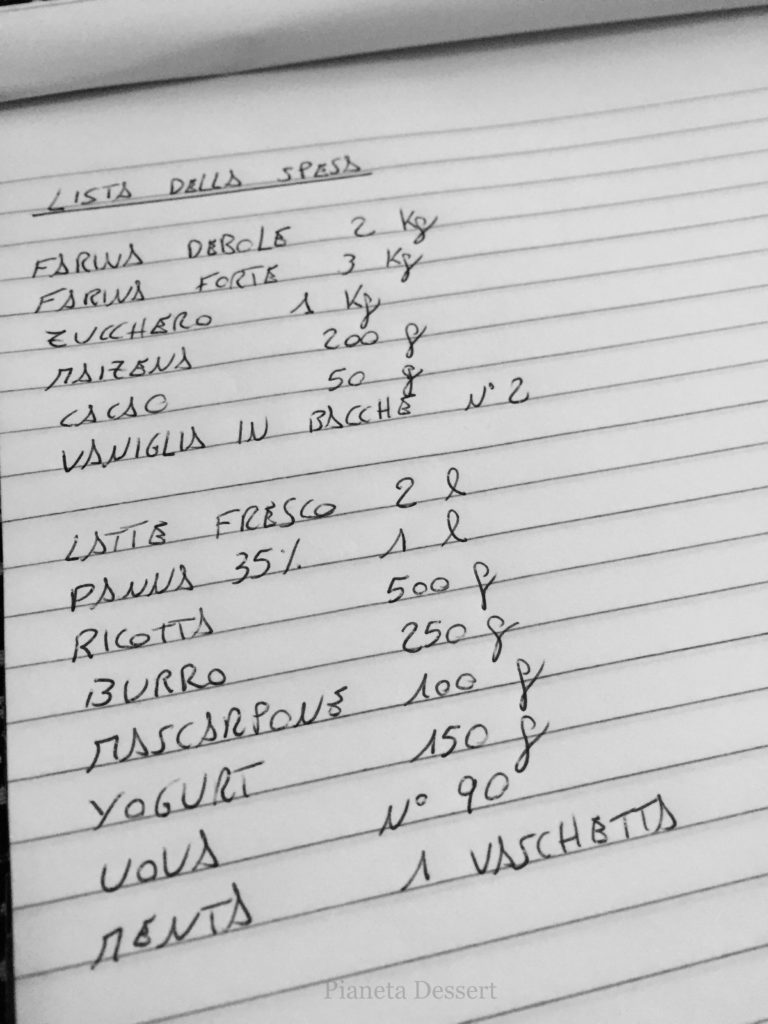 LISTA DELLA SPESA
FARINA DEBOLE 2 Kg
FARINA FORTE 3 Kg
ZUCCHERO 1 Kg
MAIZENA 200 g
CACAO 50 g
VANIGLIA IN BACCHE N° 2
LATTE FRESCO 2 l
PANNA 35% 1 l
RICOTTA 500 g
BURRO 250 g
MASCARPONE 100 g
YOGURT 150 g
UOVA N° 90
MENTA 1 VASCHETTA
Pianeta Dessert